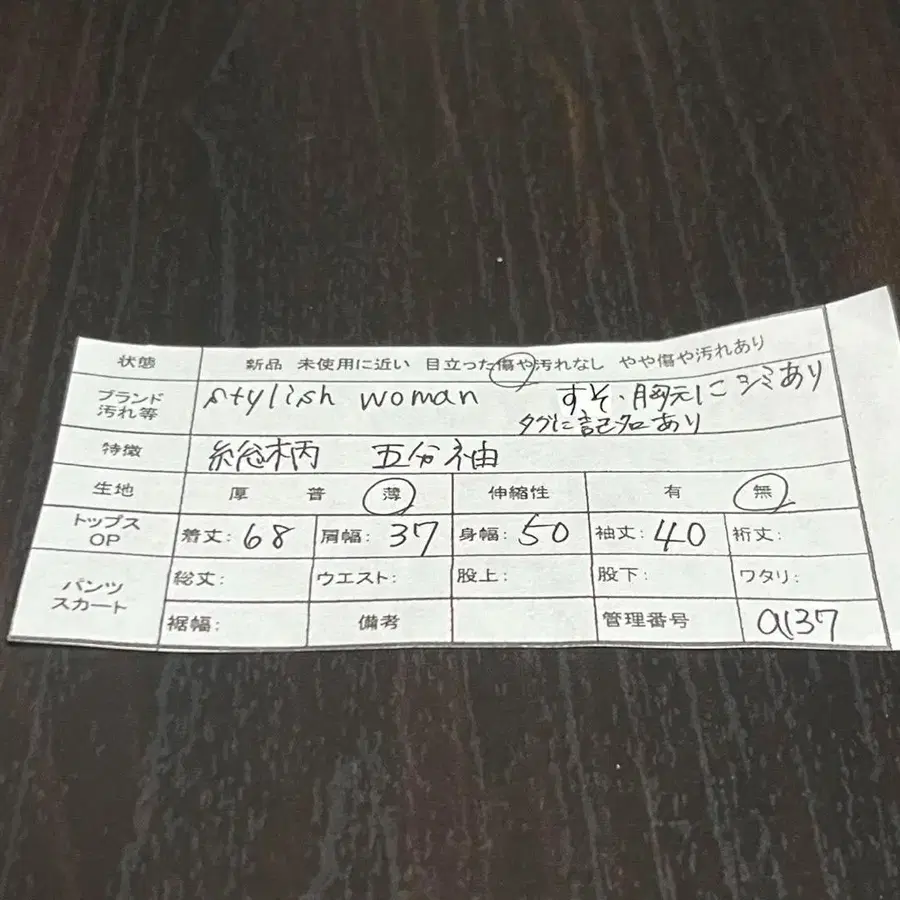 状態 新品 未使用に近い 目立った傷や汚れなし やや傷や汚れあり
ブランド 汚れ等 stylish woman すそ、胸元にシミあり
タグに記名あり
特徴 総柄 五分袖
生地 厚 普 薄 伸縮性 有 無
トップス OP 着丈: 68 肩幅: 37 身幅: 50 袖丈: 40 裄丈:
パンツ スカート 総丈: ウエスト: 股上: 股下: ワタリ:
裾幅: 備考 管理番号 a137